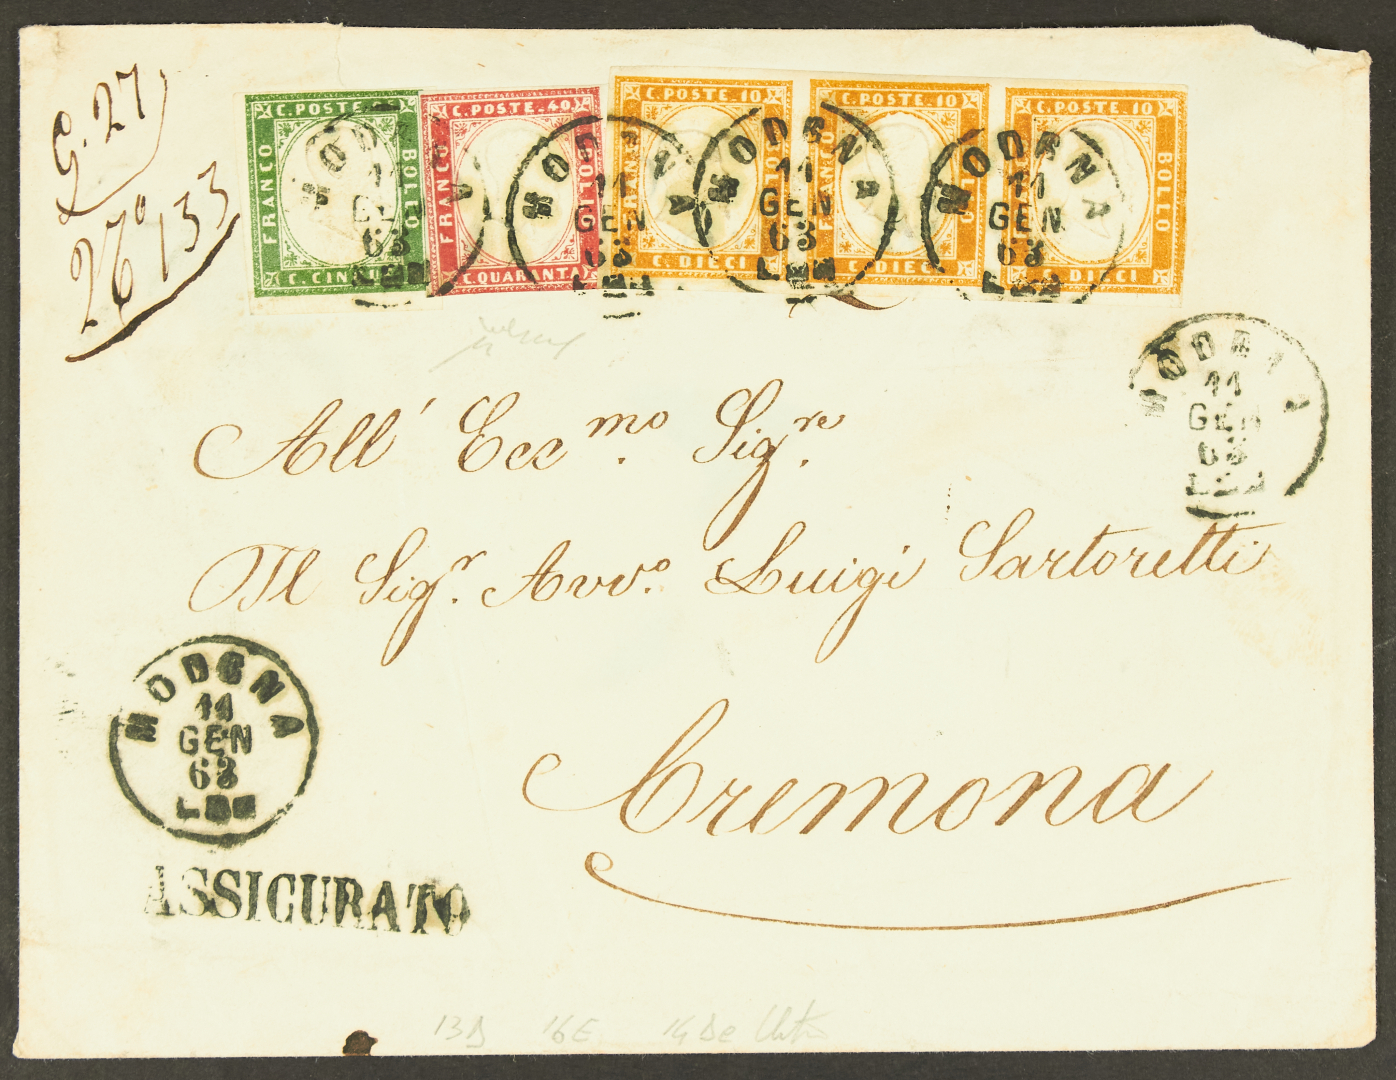 g. 27
26° 133
C. POSTE
FRANCO
BOLLO
C. CINQU
C. POSTE. 40
FRANCO
BOLLO
C. QUARANTA
C. POSTE 10
FRANCO
C. DIECI
C. POSTE 10
FRANCO
C. DIECI
C. POSTE 10
BOLLO
C. DIECI
MODENA
11
GEN
63
MODENA
11
GEN
63
MODENA
11
GEN
63
MODENA
11
GEN
63
All' Ecc.mo Sig.re
Il Sig.r Avv.o Luigi Sartoretti
Cremona
MODENA
11
GEN
63
MODENA
11
GEN
63
ASSICURATO
13D 16E 14De